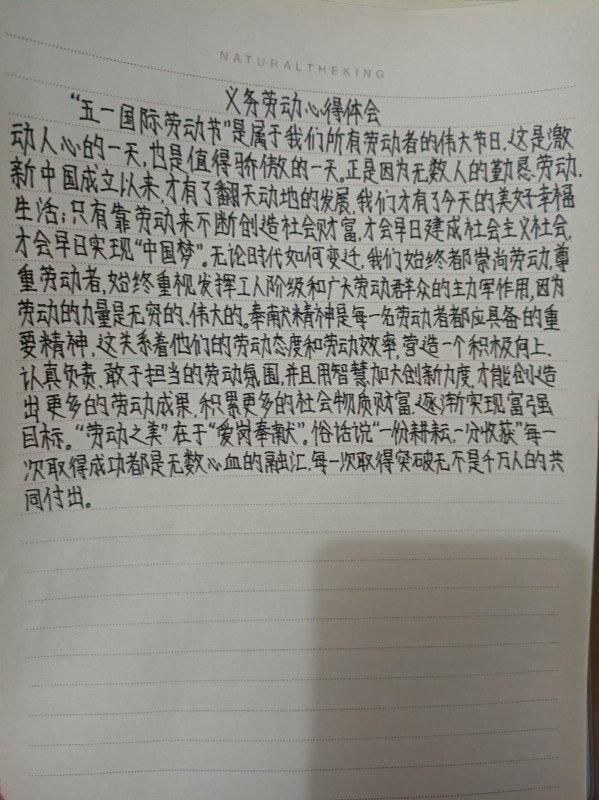 NATURALTHEKING
义务劳动心得体会
“五一国际劳动节”是属于我们所有劳动者的伟大节日.这是激
动人心的一天,也是值得骄傲的一天。正是因为无数人的勤恳劳动.
新中国成立以来,才有了翻天动地的发展,我们才有了今天的美好幸福
生活;只有靠劳动来不断创造社会财富,才会早日建成社会主义社会,
才会早日实现“中国梦”。无论时代如何变迁,我们始终都崇尚劳动,尊
重劳动者,始终重视发挥工人阶级和广大劳动群众的主力军作用,因为
劳动的力量是无穷的、伟大的。奉献精神是每一名劳动者都应具备的重
要精神,这关系着他们的劳动态度和劳动效率,营造一个积极向上、
认真负责、敢于担当的劳动氛围,并且用智慧加大创新力度,才能创造
出更多的劳动成果,积累更多的社会物质财富.逐渐实现富强
目标。“劳动之美”在于“爱岗奉献”。俗话说“一份耕耘.一分收获”每一
次取得成功者都是无数心血的融汇.每一次取得突破无不是千万人的共
同付出。